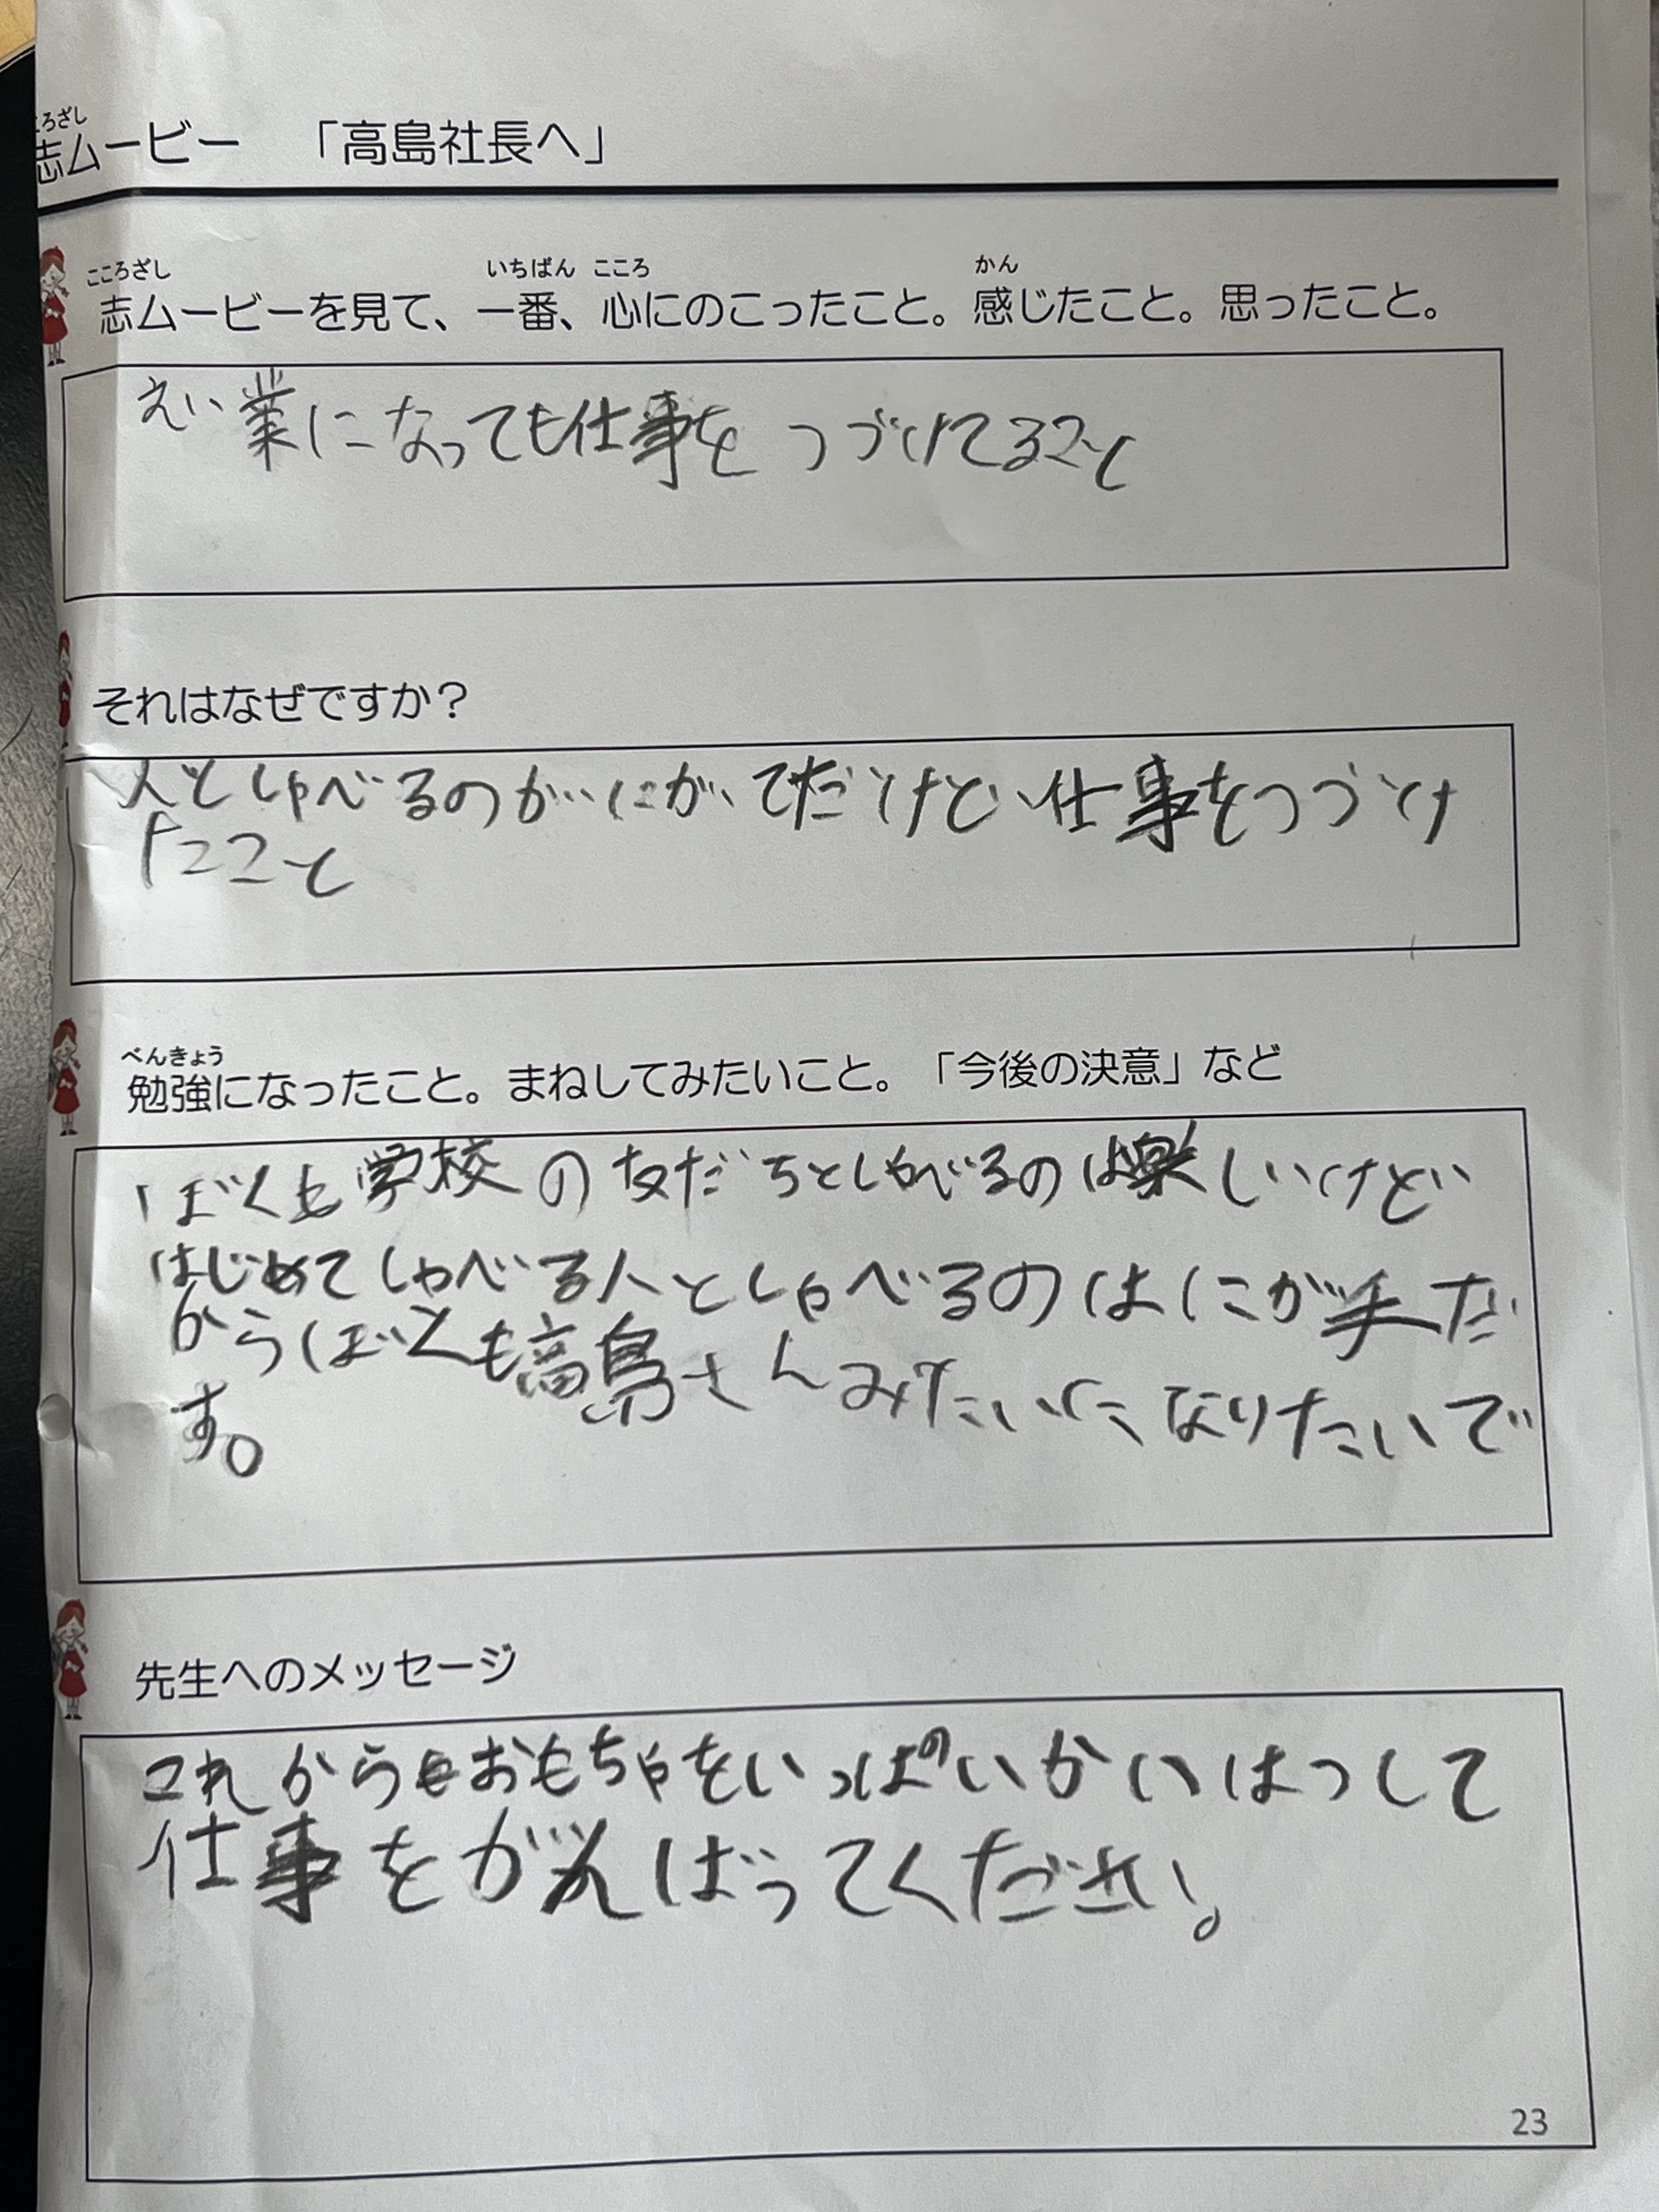 ころざし
志ムービー 「高島社長へ」
こころざし いちばん こころ かん
志ムービーを見て、一番、心にのこったこと。感じたこと。思ったこと。
えい業になっても仕事をつづけてること
それはなぜですか？
人としゃべるのがにがてだけど仕事をつづけ
たこと
べんきょう
勉強になったこと。まねしてみたいこと。「今後の決意」など
ぼくも学校の友だちとしゃべるのは楽しいけど
はじめてしゃべる人としゃべるのはにが手だ
からぼくも高島さんみたいになりたいで
す。
先生へのメッセージ
これからもおもちゃをいっぱいかいはつして
仕事をがんばってください。
23